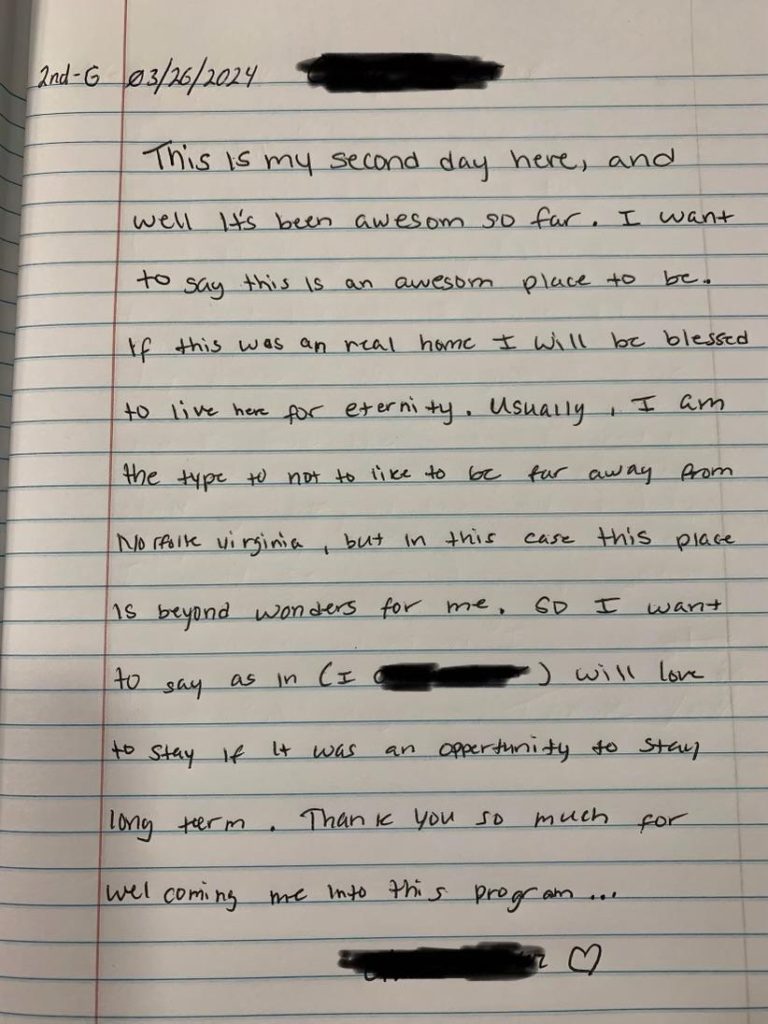 2nd-G 03/26/2024
This is my second day here, and
well It's been awesom so far. I want
to say this is an awesom place to be.
If this was an real home I will be blessed
to live here for eternity. Usually, I am
the type to not to like to be far away from
Norfolk virginia, but in this case this place
is beyond wonders for me. SO I want
to say as in (I ) will love
to stay if it was an oppertunity to stay
long teerm. Thank you so much for
welcoming me into this program...
♡